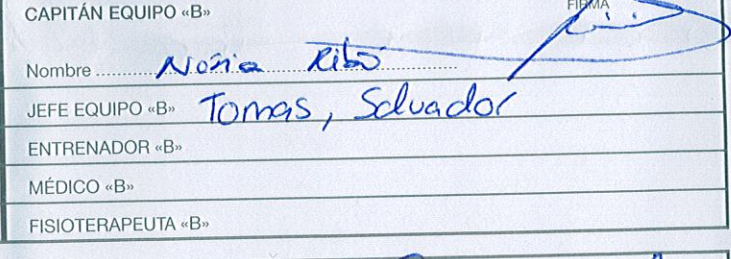 CAPITÁN EQUIPO «B»
FIRMA
Nombre Noria Ribó
JEFE EQUIPO «B» Tomas, Salvador
ENTRENADOR «B»
MÉDICO «B»
FISIOTERAPEUTA «B»